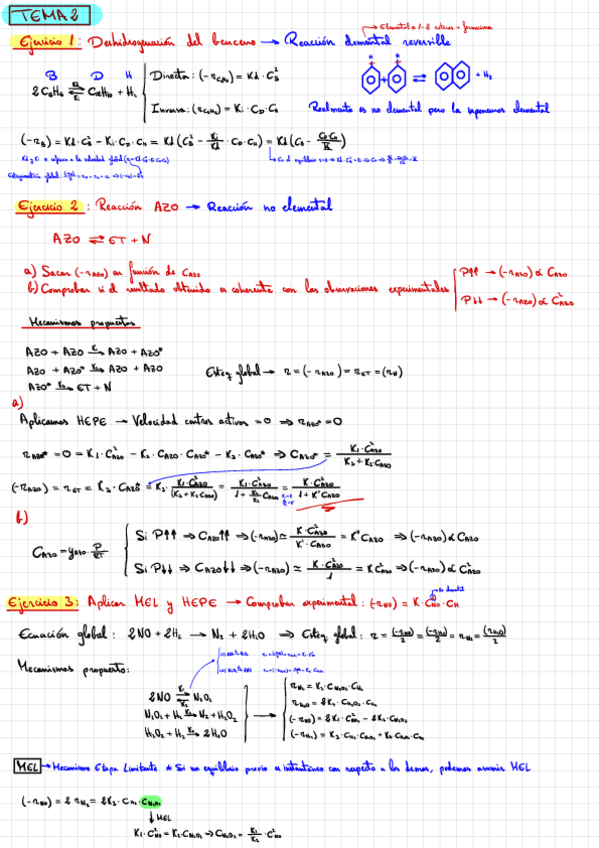 TEMA 2
Elemental = 1-2 enlaces + formaciones
Ejercicio 1: Deshidrogenación del benceno → Reacción elemental reversible
B D H
2C₆H₆ ⇌ C₁₂H₁₀ + H₂
Directa: (-r_C6H6) = Kd · C_B²
Inversa: (r_C6H6) = Ki · C_D · C_H
+ ⇌ + H₂
Realmente es no elemental pero la suponemos elemental
(-r_B) = Kd · C_B² - Ki · C_D · C_H = Kd (C_B² - Ki/Kd · C_D · C_H) = Kd (C_B² - C_D C_H / K)
Ejercicio 2: Reacción AZO → Reacción no elemental
AZO ⇌ ET + N
a) Sacar (-r_AZO) en función de C_AZO
b) Comprobar si el resultado obtenido es coherente con las observaciones experimentales
P↑↑ → (-r_AZO) α C_AZO
P↓↓ → (-r_AZO) α C²_AZO
Mecanismos propuestos
AZO + AZO →K₁ AZO + AZO*
AZO + AZO* →K₂ AZO + AZO
AZO* →K₃ ET + N
Esteq global → r = (-r_AZO) = r_ET = (r_N)
a)
Aplicamos HEPE → Velocidad centros activos = 0 ⇒ r_AZO* = 0
r_AZO* = 0 = K₁ · C²_AZO - K₂ · C_AZO · C_AZO* - K₃ · C_AZO* ⇒ C_AZO* = K₁ · C²_AZO / (K₃ + K₂ C_AZO)
(-r_AZO) = r_ET = K₃ · C_AZO* = K₃ · K₁ · C²_AZO / (K₃ + K₂ C_AZO) = K₁ · C²_AZO / (1 + K₂/K₃ C_AZO) = K · C²_AZO / (1 + K' C_AZO)
b)
C_AZO = y_AZO · P/RT
Si P↑↑ ⇒ C_AZO↑↑ ⇒ (-r_AZO) ≃ K · C²_AZO / K' · C_AZO = K'' C_AZO ⇒ (-r_AZO) α C_AZO
Si P↓↓ ⇒ C_AZO↓↓ ⇒ (-r_AZO) ≃ K · C²_AZO / 1 = K C²_AZO ⇒ (-r_AZO) α C²_AZO
No elemental
Ejercicio 3: Aplicar MEL y HEPE → Comprobar experimental: (-r_NO) = K · C²_NO · C_H
Ecuación global: 2NO + 2H₂ → N₂ + 2H₂O ⇒ Esteq global: r = (-r_NO)/2 = (-r_H2)/2 = r_N2 = (r_H2O)/2
Mecanismos propuesto:
2NO ⇌ N₂O₂
N₂O₂ + H₂ →K₃ N₂ + H₂O₂
H₂O₂ + H₂ →K₄ 2H₂O
r_N2 = K₃ · C_N2O2 · C_H2
r_H2O = 2K₄ · C_H2O2 · C_H2
(-r_NO) = 2K₁ · C²_NO - 2K₂ · C_N2O2
MEL → Mecanismo Etapa Limitante * Si un equilibrio previo es instantáneo con respecto a los demás, podemos asumir MEL
(-r_NO) = 2 r_N2 = 2K₃ · C_H2 · C_N2O2
↓ MEL
K₁ · C²_NO = K₂ · C_N2O2 → C_N2O2 = K₁/K₂ · C²_NO